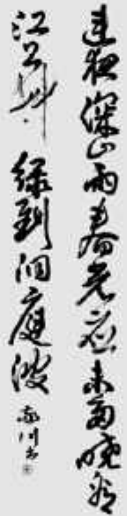 連夜深山雨春光應未多曉看
江上草綠到洞庭波
南川書